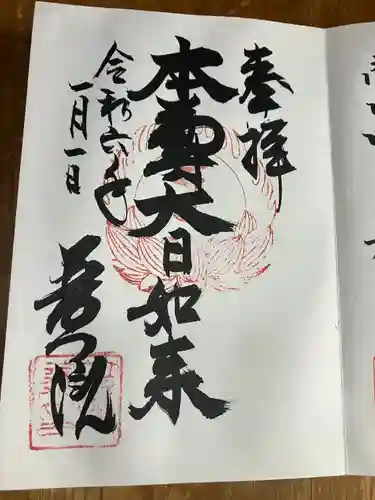 奉拝
本尊大日如来
令和六年
一月一日